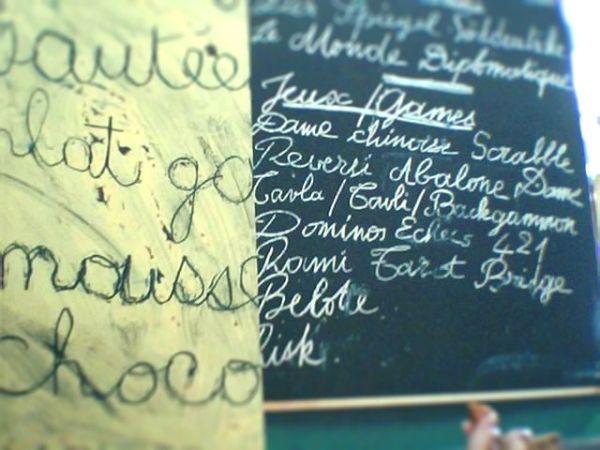 autée
lat go
mousse
choco
Der Spiegel
Le Monde Diplomatique
Jeux/Games
Dame chinoise Scrabble
Reversi Abalone Dame
Tavla/Tavli/Backgammon
Dominos Echecs 421
Rami Tarot Bridge
Belote
Risk